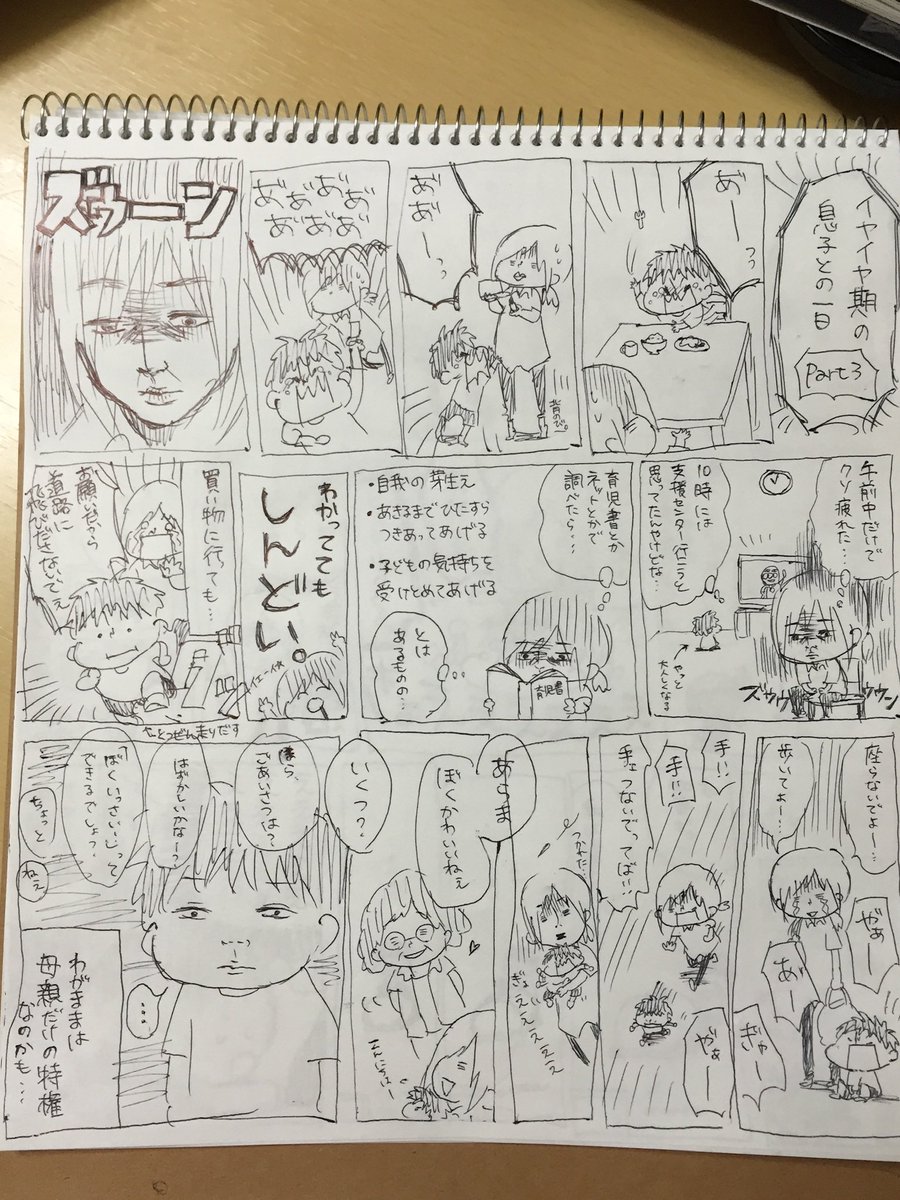 イヤイヤ期の
息子との一日
Part3
あ゛ーっっ
あ゛
あ゛ーっっ
背のび。
あ゛あ゛あ゛あ゛
あ゛あ゛あ゛あ゛
ズゥーン
午前中だけで
クソ疲れた…
10時には
支援センター行こうと
思ってたんやけどな…
やっと
大人しくなる
ズゥゥ
ゥゥン
育児書とか
ネットとかで
調べたら…
・自我の芽生え
・あきるまでひたすら
つきあってあげる
・子どもの気持ちを
受けとめてあげる
とは
あるものの…
育児書
わかってても
しんどい。
イエーイ
買い物に行っても…
お願いだから
道路に
飛びださないでぇ
とつぜん走りだす
座らないでよー…
歩いてよー…
やぁー
あ゛ー
ぎゃー
手!!
手!!
手ェつないでってば!!
やぁー
つかれた…
ぎょえええええ
あらま
ぼくかわいいねぇ
こんにちはー
いくつ?
ほら、
ごあいさつは?
はずかしいかなー?
「ぼくいっさい」って
できるでしょっ?
ちょっと
ねぇ
…
わがままは
母親だけの特権
なのかも…